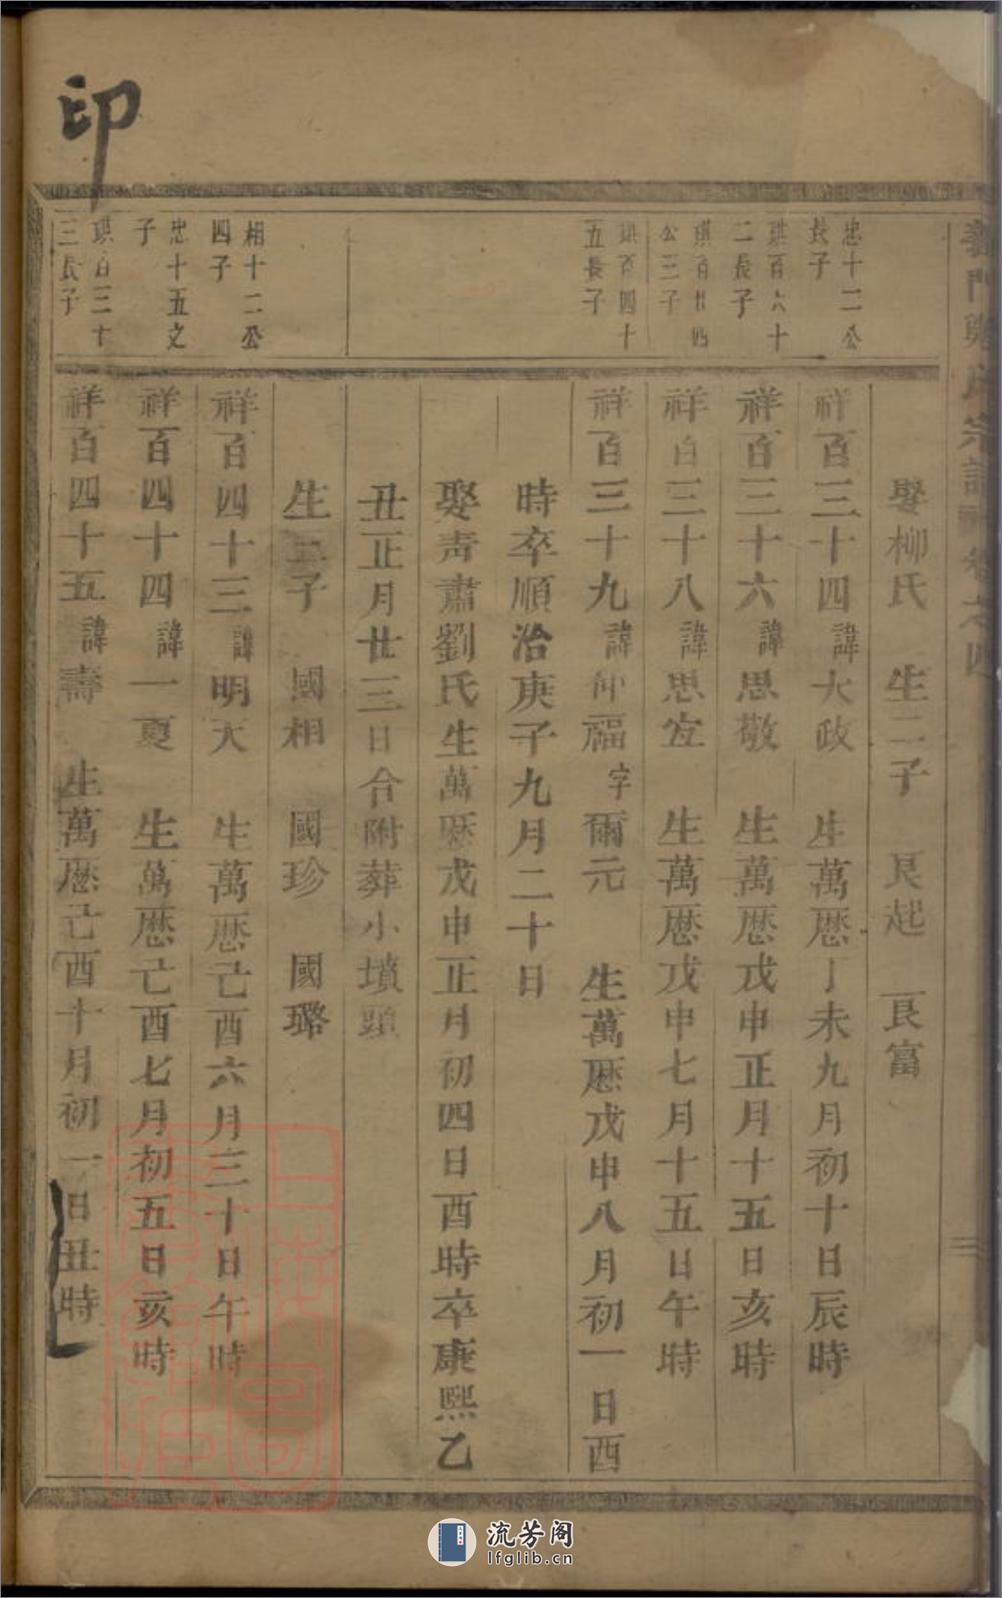 義門鄭氏宗譜 卷之四
娶柳氏 生二子 良起 良富
忠十二公
長子
祥百三十四諱大政 生萬厯丁未九月初十日辰時
琪百六十
二長子
祥百三十六諱思敬 生萬厯戊申正月十五日亥時
琪百廿四
公三子
祥百三十八諱思宜 生萬厯戊申七月十五日午時
琪百四十
五長子
祥百三十九諱仲福字爾元 生萬厯戊申八月初一日酉
時卒順治庚子九月二十日
娶青肅劉氏生萬厯戊申正月初四日酉時卒康熙乙
丑正月廿三日合附葬小墳頭
生三子 國相 國珍 國璐
相十二公
四子
祥百四十三諱明天 生萬厯己酉六月三十日午時
忠十五文
子
祥百四十四諱一夏 生萬厯己酉七月初五日亥時
琪百三十
三長子
祥百四十五諱壽 生萬厯己酉十月初一日丑時
印
流芳阁
lfglib.cn